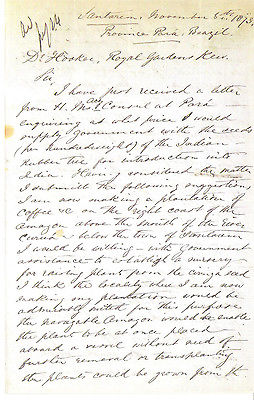 Santarem, November 8th 1873
Province Pará, Brazil
Dr Hooker, Royal Gardens Kew.
Sir
I have just received a letter
from H. M's Consul at Pará
enquiring at what price I would
supply government with the seeds
(per hundredweight) of the Indian-
Rubber tree for introduction into
India. Having considered the matter
I submit the following suggestions
I am now making a plantation of
coffee &c on the right coast of the
Amazon above the mouth of the river
below the town of Santarem
I would be willing - with government
assistance - to establish a nursery -
for raising plants from the ciringa seed
I think the locality where I am now
making my plantation would be
admirably suited for this purpose
the navigable Amazon would enable
the plants to be at once placed
aboard a vessel without need of
further removal or transplanting
the plants could be grown from the